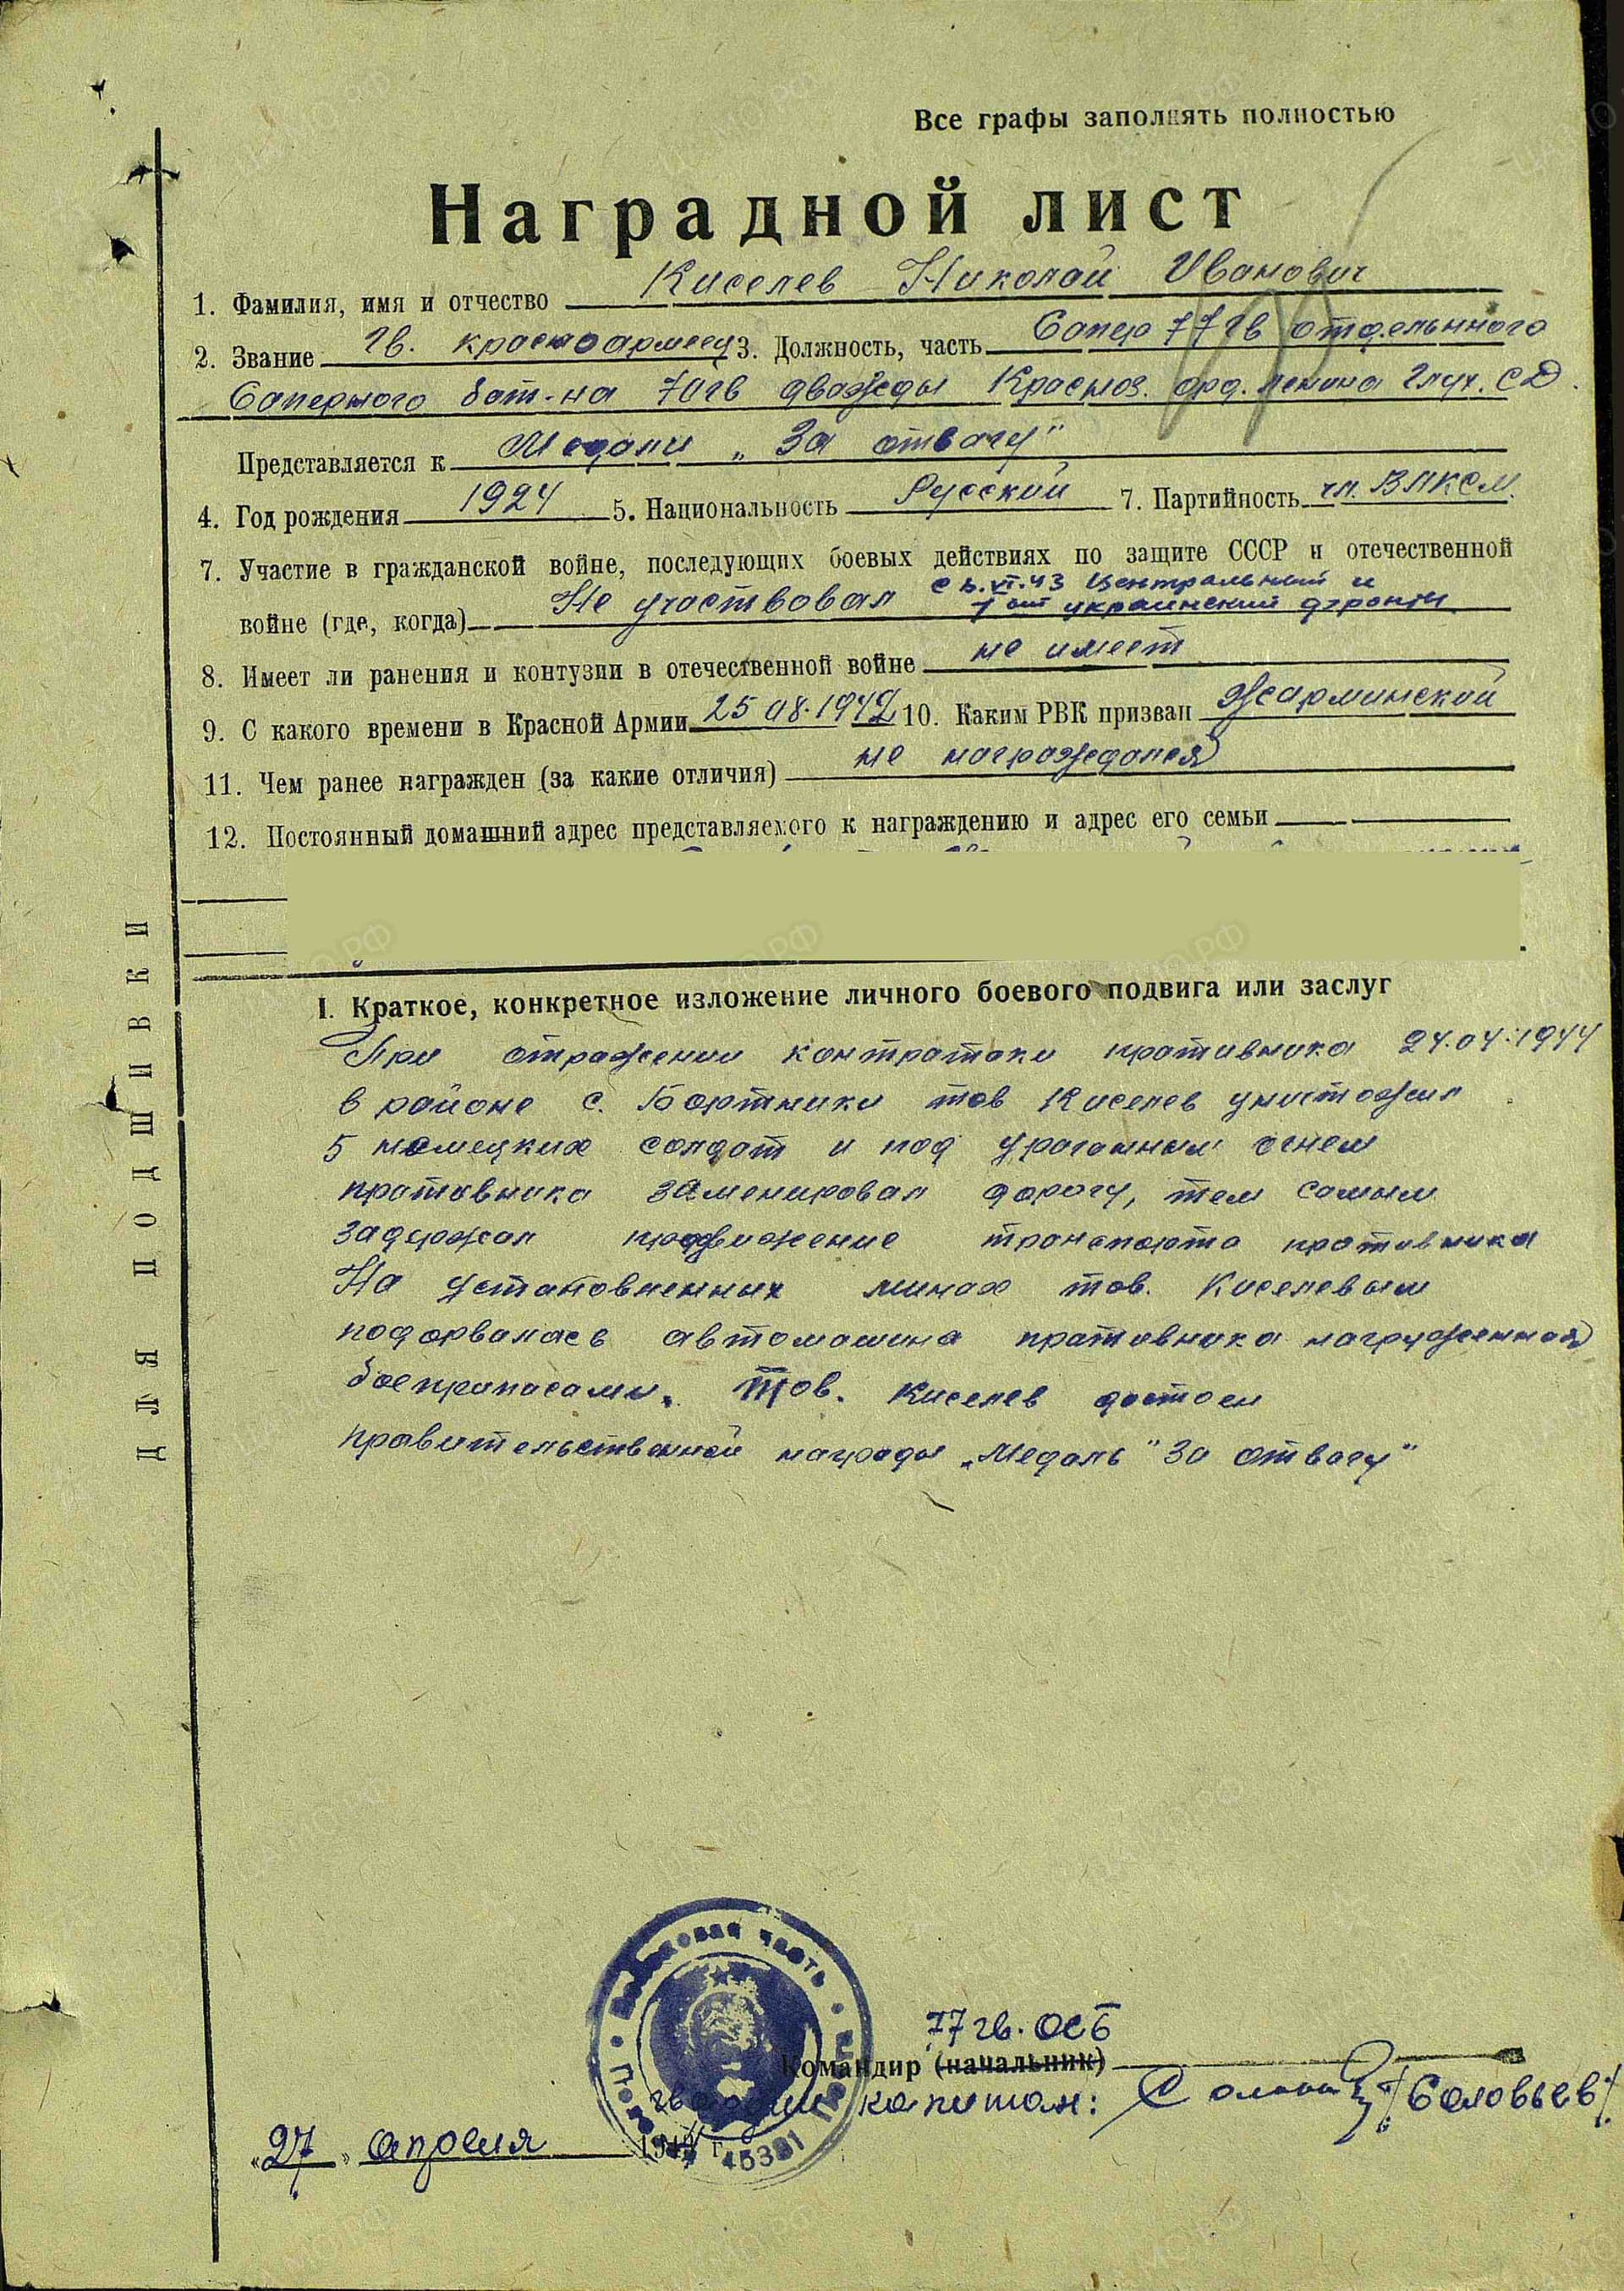 Все графы заполнять полностью
Наградной лист
1. Фамилия, имя и отчество Киселев Николай Иванович
2. Звание гв. красноармеец 3. Должность, часть Сапер 77 гв отдельнного
Саперного бат-на 70 гв дважды Красноз. орд. Ленина Глух. СД.
Представляется к Медали „За отвагу"
4. Год рождения 1924 5. Национальность Русский 7. Партийность чл. ВЛКСМ.
7. Участие в гражданской войне, последующих боевых действиях по защите СССР и отечественной
войне (где, когда) Не участвовал с 5.VI.43 Центральный и
1ый украинский фронты
8. Имеет ли ранения и контузии в отечественной войне не имеет
9. С какого времени в Красной Армии 25.08.1942 10. Каким РВК призван Жарминской
11. Чем ранее награжден (за какие отличия) не награждался
12. Постоянный домашний адрес представляемого к награждению и адрес его семьи
ДЛЯ ПОДШИВКИ
I. Краткое, конкретное изложение личного боевого подвига или заслуг
При отражении контратаки противника 24.04.1944
в районе с. Бортники тов Киселев уништожил
5 немецких солдат и под ураганным огнем
противника заменировал дорогу, тем самым
задержал продвижение транспорта противника
На установленных минах тов. Киселевым
подорвалась автомашина противника нагруженная
боеприпасами. Тов. Киселев достоен
правительственной награды „Медаль "За отвагу"
77 гв. ОСБ
Командир (начальник)
гвардии капитан: /Соловьев/
„27" апреля 1944 г.
Полевая Почта
Войсковая часть
45381